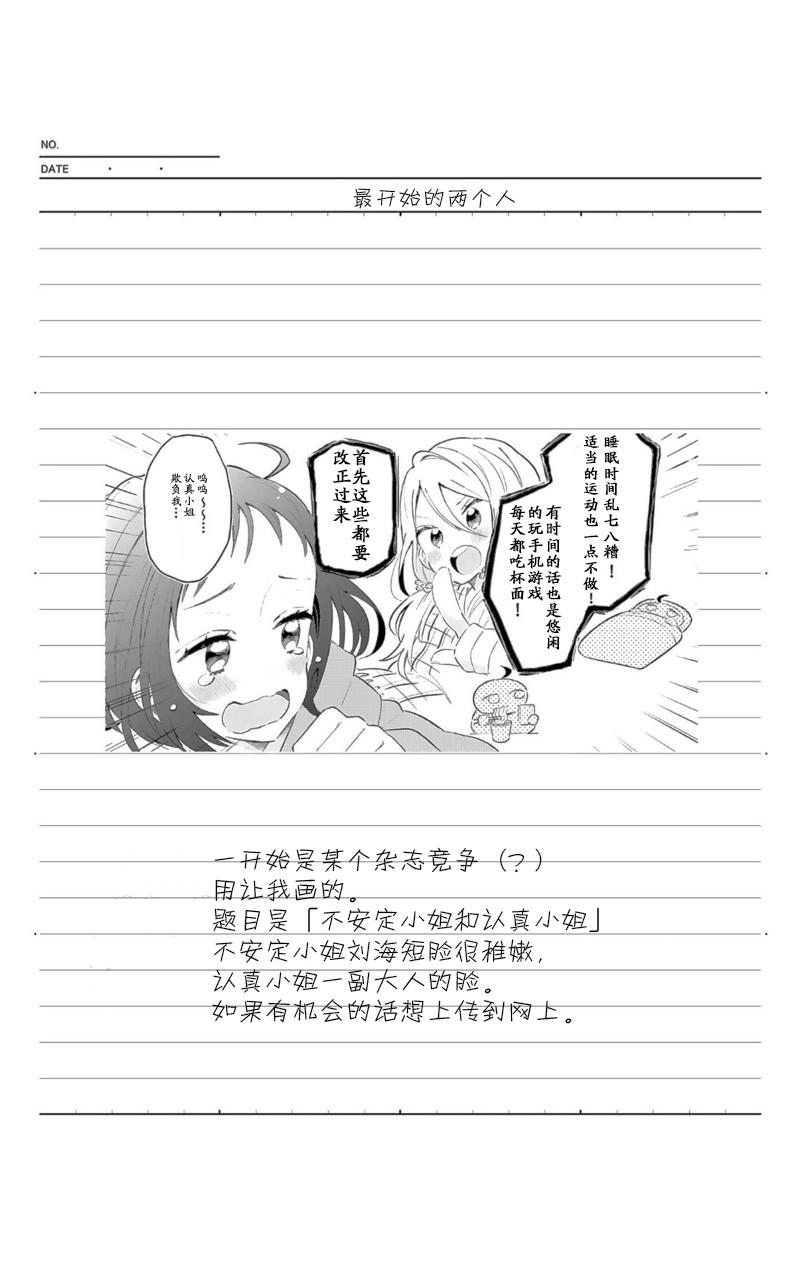 NO.
DATE
最开始的两个人
睡眠时间乱七八糟！
适当的运动也一点不做！
有时间的话也是悠闲
的玩手机游戏
每天都吃杯面！
首先这些都要
改正过来
呜呜～～…
认真小姐
欺负我…
一开始是某个杂志竞争（？）
用让我画的。
题目是「不安定小姐和认真小姐」
不安定小姐刘海短脸很稚嫩，
认真小姐一副大人的脸。
如果有机会的话想上传到网上。